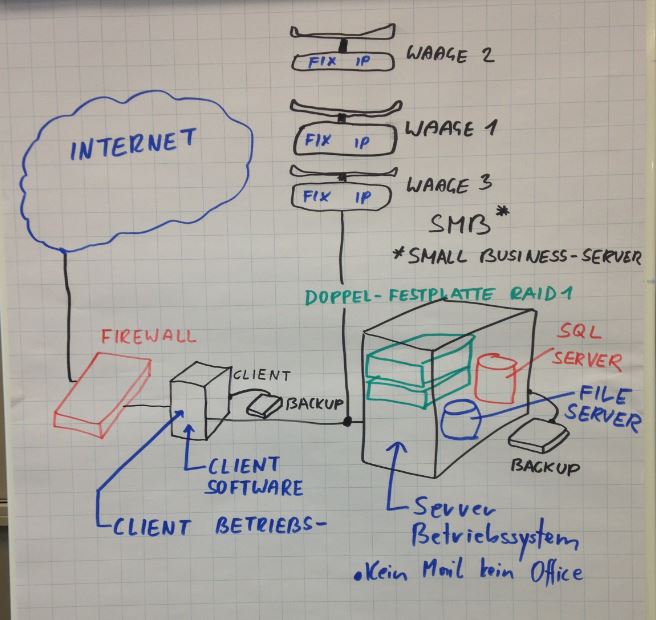 FIX IP WAAGE 2
INTERNET
FIX IP WAAGE 1
FIX IP WAAGE 3
SMB*
*SMALL BUSINESS-SERVER
DOPPEL-FESTPLATTE RAID 1
FIREWALL
SQL
SERVER
CLIENT
BACKUP
FILE
SERVER
BACKUP
CLIENT
SOFTWARE
CLIENT BETRIEBS-
Server
Betriebssystem
•Kein Mail kein Office